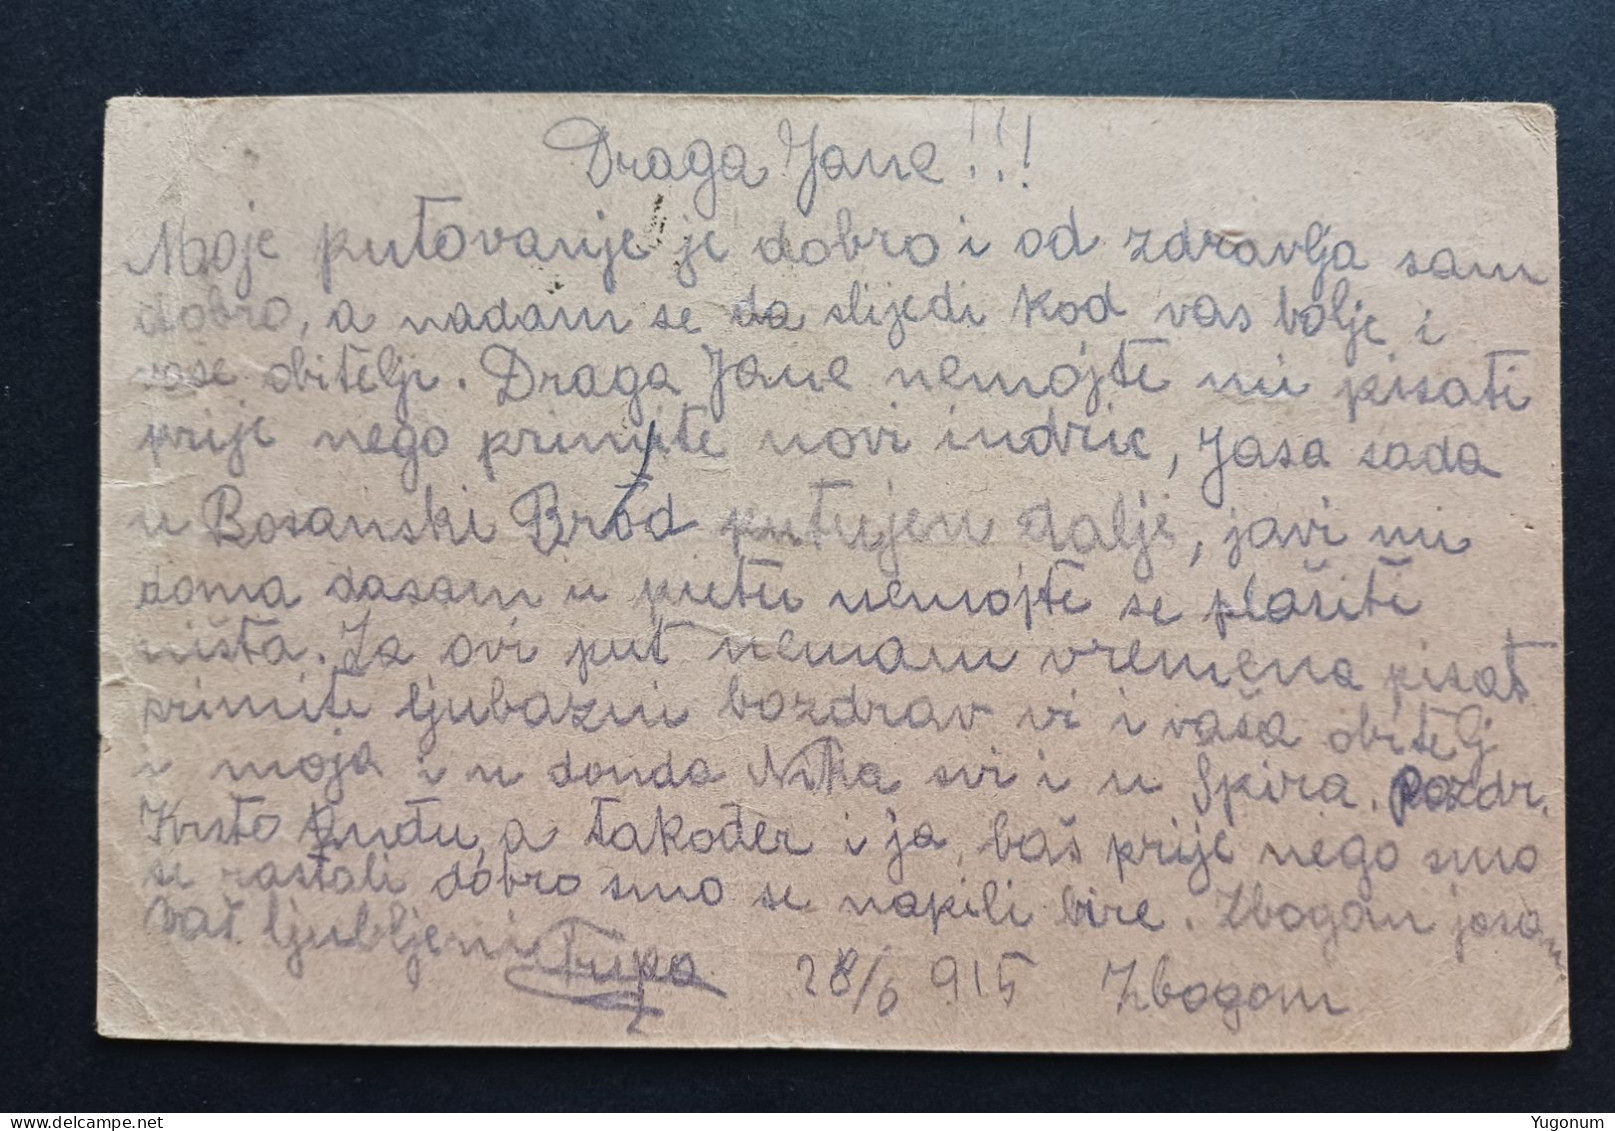 Draga Jane!!!
Moje putovanje je dobro i od zdravlja sam
dobro, a nadam se da slijedi kod vas bolje i
vase obitelji. Draga Jane nemojte mi pisati
prije nego primite novi indric, Jasa sada
u Bosanski Brod putujem dalje, javi mi
doma dasam u putu nemojte se plašiti
ništa. Za ovi put nemam vremena pisat
primite ljubazni bozdrav vi i vaša obitelj
i moja i u donda Nika svi i u Spira. Pozdr.
Krsto a također i ja, baš prije nego smo
se rastali dobro smo se napili bire. Zbogom josam
Vaš ljubljeni Tripo 28/6 915 Zbogom
www.delcampe.net
Yugonum